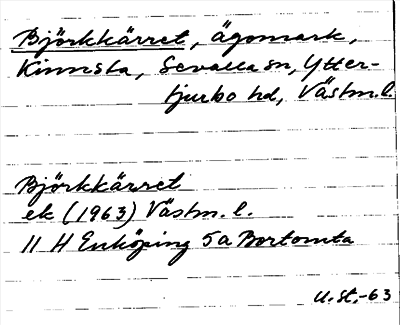 Björkkärret, ägomark,
Kinnsta, Sevalla sn, Ytter-
tjurbo hd, Västm. l.
Björkkärret
ek (1963) Västm. l.
11 H Enköping 5a Bortomta
U. st. -63